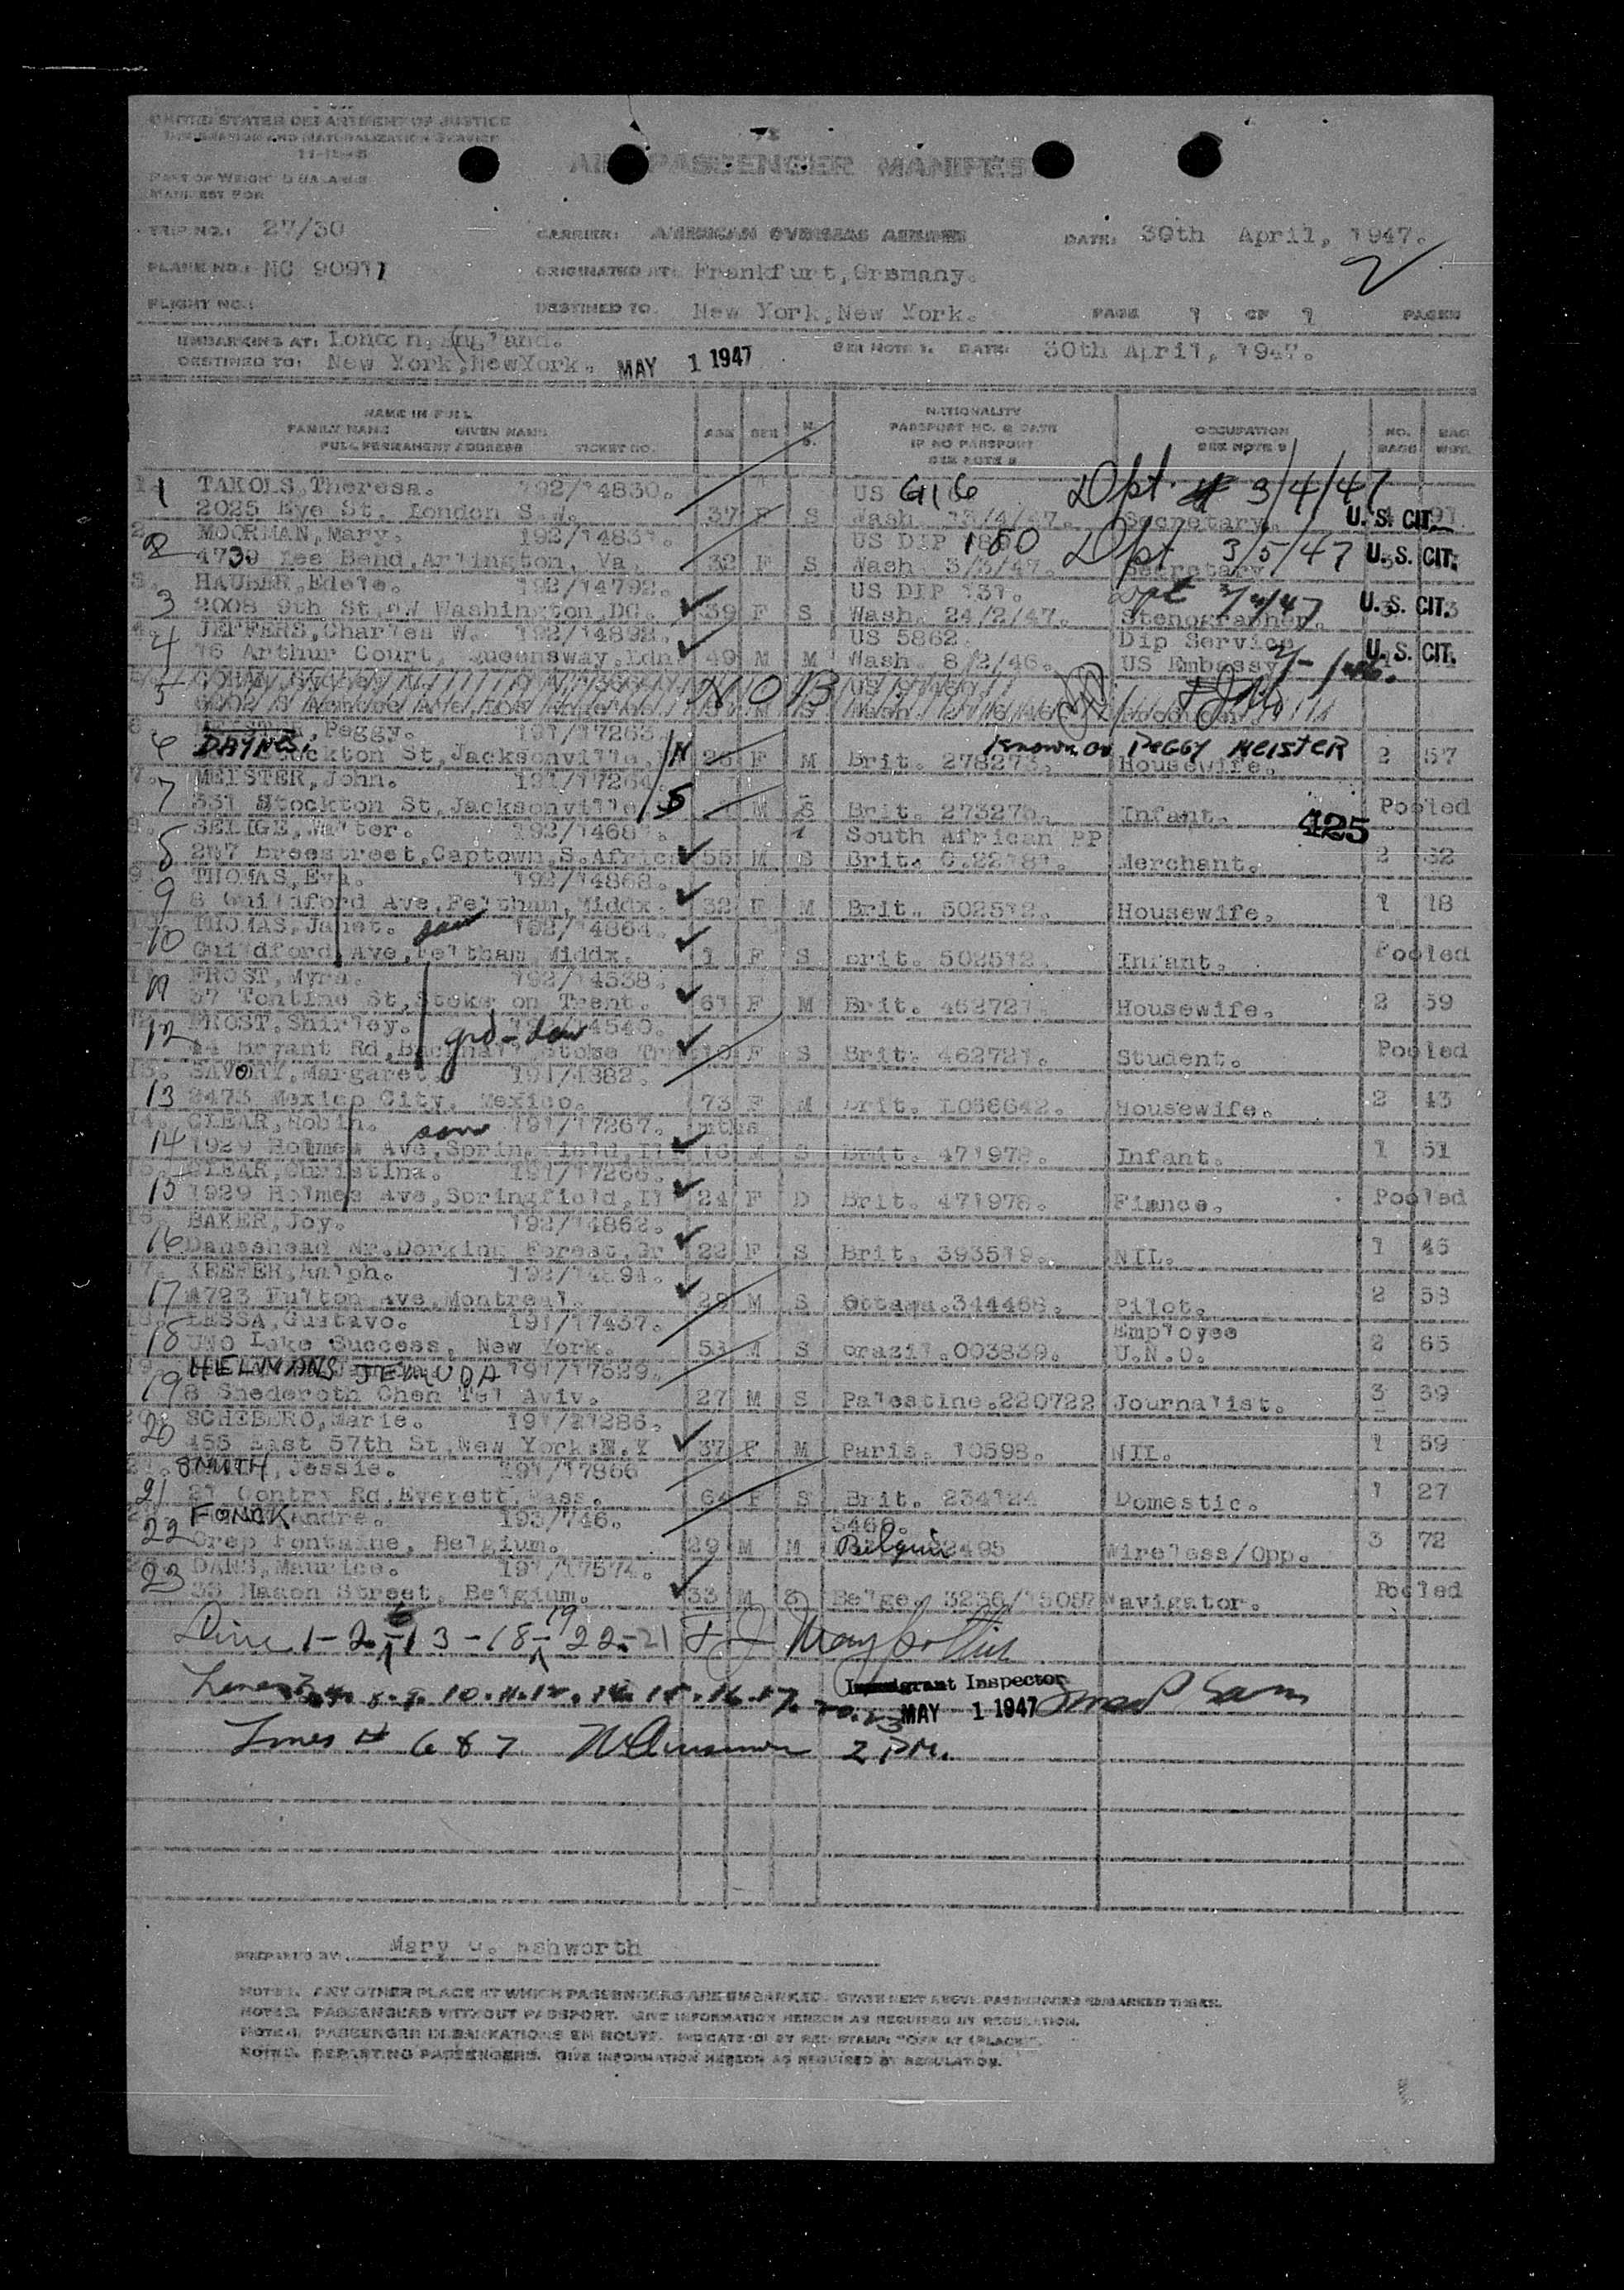 UNITED STATES DEPARTMENT OF JUSTICE
IMMIGRATION AND NATURALIZATION SERVICE
PART OF WEIGHT & BALANCE
MANIFEST FOR
AIR PASSENGER MANIFEST
TRIP NO.: 27/30 CARRIER: AMERICAN OVERSEAS AIRLINES DATE: 30th April, 1947.
2
PLANE NO.: NC 90911 ORIGINATED AT: Frankfurt,Gremany.
FLIGHT NO.: DESTINED TO. New York,New York. PAGE 1 OF 1 PAGES
EMBARKING AT: London,England. SEE NOTE 1. DATE: 30th April, 1947.
DESTINED TO: New York,NewYork. MAY 1 1947
NAME IN FULL
FAMILY NAME GIVEN NAME
FULL PERMANENT ADDRESS TICKET NO.
AGE SEX M. S.
NATIONALITY
PASSPORT NO. & DATE
IF NO PASSPORT
SEE NOTE
OCCUPATION
SEE NOTE
NO. BAGS BAG WGT.
1 TAKOLS,Theresa. 192/14830. US 6116 Dpt. 3/4/47
2025 Eye St. London S.W. 37 F S Wash. /4/47. Secretary. U.S. CIT. 91
2 MOORMAN,Mary. 192/14831. US DIP 180 Dpt 3/5/47
4739 Lee Bend,Arlington, Va. 32 F S Wash. 3/3/47. Secretary. U.S. CIT.
3 HAUBER,Edele. 192/14792. US DIP 131. Dpt
2008 9th St,NW Washington,DC. 39 F S Wash. 24/2/47. Stenographer. U.S. CIT.
4 JEFFERS,Charles W. 192/14892. US 5862. Dip Service
16 Arthur Court, Queensway,Ldn. 49 M M Wash. 8/2/46. US Embassy U.S. CIT.
5 NOB
6 DAYNES, Peggy. 191/17263. Known as PEGGY MEISTER
Stockton St,Jacksonville, 26 F M Brit. 278273. Housewife. 2 57
7 MEISTER,John. 191/17264.
331 Stockton St,Jacksonville M S Brit. 273276. Infant. Pooled
425
8 SELIGE,Walter. 192/14681. South African PP
287 Breestreet,Captown,S.Africa 55 M S Brit. C.22181. Merchant. 2 62
9 THOMAS,Eva. 192/14868.
8 Guildford Ave,Feltham,Middx. 32 F M Brit. 502512. Housewife. 1 18
10 THOMAS,Janet. dau 192/14864.
Guildford Ave,Feltham,Middx. 1 F S Brit. 502512. Infant. Pooled
11 FROST,Myra. 192/14538.
37 Tontine St,Stoke on Trent. 61 F M Brit. 462721. Housewife. 2 59
12 FROST,Shirley. grd-dau 192/14540.
Bryant Rd,Bucknall,Stoke 10 F S Brit. 462721. Student. Pooled
13 SAVORY,Margaret. 191/4382.
2473 Mexico City, Mexico. 73 F M Brit. L058642. Housewife. 2 43
14 CLEAR,Robin. son 191/17267. mths
1929 Holmes Ave,Springfield,Il 16 M S Brit. 471978. Infant. 1 51
15 CLEAR,Christina. 191/17266.
1929 Holmes Ave,Springfield,Il 24 F D Brit. 471978. Fiance. Pooled
16 BAKER,Joy. 192/14862.
Daneshead Nr.Dorking Forest,Gr 22 F S Brit. 393519. NIL. 1 46
17 KEEFER,Ralph. 192/14894.
4723 Fulton Ave,Montreal. 28 M S Ottawa.344468. Pilot. 2 53
18 LESSA,Gustavo. 191/17437. Employee
UNO Lake Success, New York. 53 M S Brazil.003839. U.N.O. 2 65
19 HELMANS JEHUDA 191/17529.
8 Shederoth Chen Tel Aviv. 27 M S Palestine.220722 Journalist. 3 39
20 SCHEBERO,Marie. 191/21286.
455 East 57th St,New York.N.Y 37 F M Paris. 10598. NIL. 1 59
21 SMITH, Jessie. 191/17866
21 Gontry Rd,Everett,Mass. 64 F S Brit. 234124 Domestic. 1 27
22 FONCK Andre. 193/746. 3468.
Crep Fontaine, Belgium. 29 M M Belgium 2495 Wireless/Opp. 3 72
23 DANS,Maurice. 191/17574.
35 Hason Street, Belgium. 33 M S Belge. 3256/15087 Navigator. Pooled
Line 1-2-13-18-19-22-21
Immigrant Inspector
Lines 8. 9. 10. 11. 12. 14. 15. 16. 17. 20. 23 MAY 1 1947
Lines # 6 & 7 2 PM.
PREPARED BY: Mary G. Ashworth
NOTE 1. ANY OTHER PLACE AT WHICH PASSENGERS ARE EMBARKED. STATE NEXT ABOVE PASSENGERS EMBARKED THERE.
NOTE 2. PASSENGERS WITHOUT PASSPORT. GIVE INFORMATION HEREON AS REQUIRED BY REGULATION.
NOTE 4. PASSENGER DISBARKATIONS EN ROUTE. INDICATE (D) BY RED STAMP: "OFF AT (PLACE)".
NOTE 5. DEPARTING PASSENGERS. GIVE INFORMATION HEREON AS REQUIRED BY REGULATION.